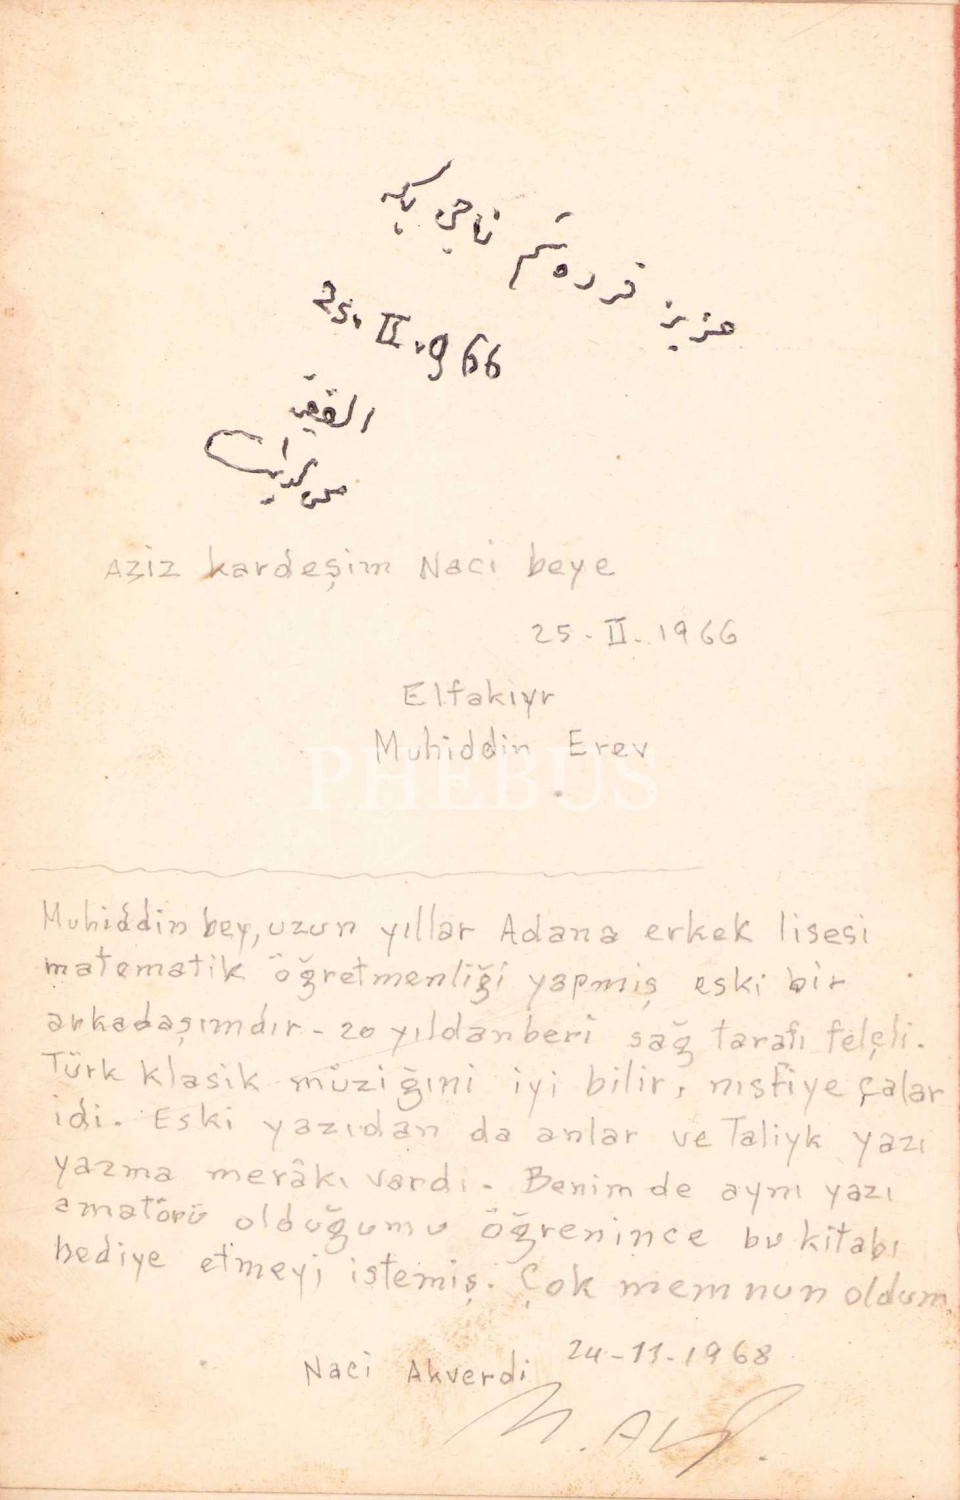 عزيز قردشم ناجى بكه
25. II. 966
الفقير
محى الدين
Aziz kardeşim Naci beye
25 - II - 1966
Elfakıyr
Muhiddin Erev
PHEBUS
Muhiddin bey, uzun yıllar Adana erkek lisesi
matematik öğretmenliği yapmış eski bir
arkadaşımdır - 20 yıldanberi sağ tarafı felçli.
Türk klasik müziğini iyi bilir, nısfiye çalar
idi. Eski yazıdan da anlar ve Taliyk yazı
yazma merâkı vardı. Benim de aynı yazı
amatörü olduğumu öğrenince bu kitabı
hediye etmeyi istemiş. Çok memnun oldum
24-11-1968
Naci Akverdi